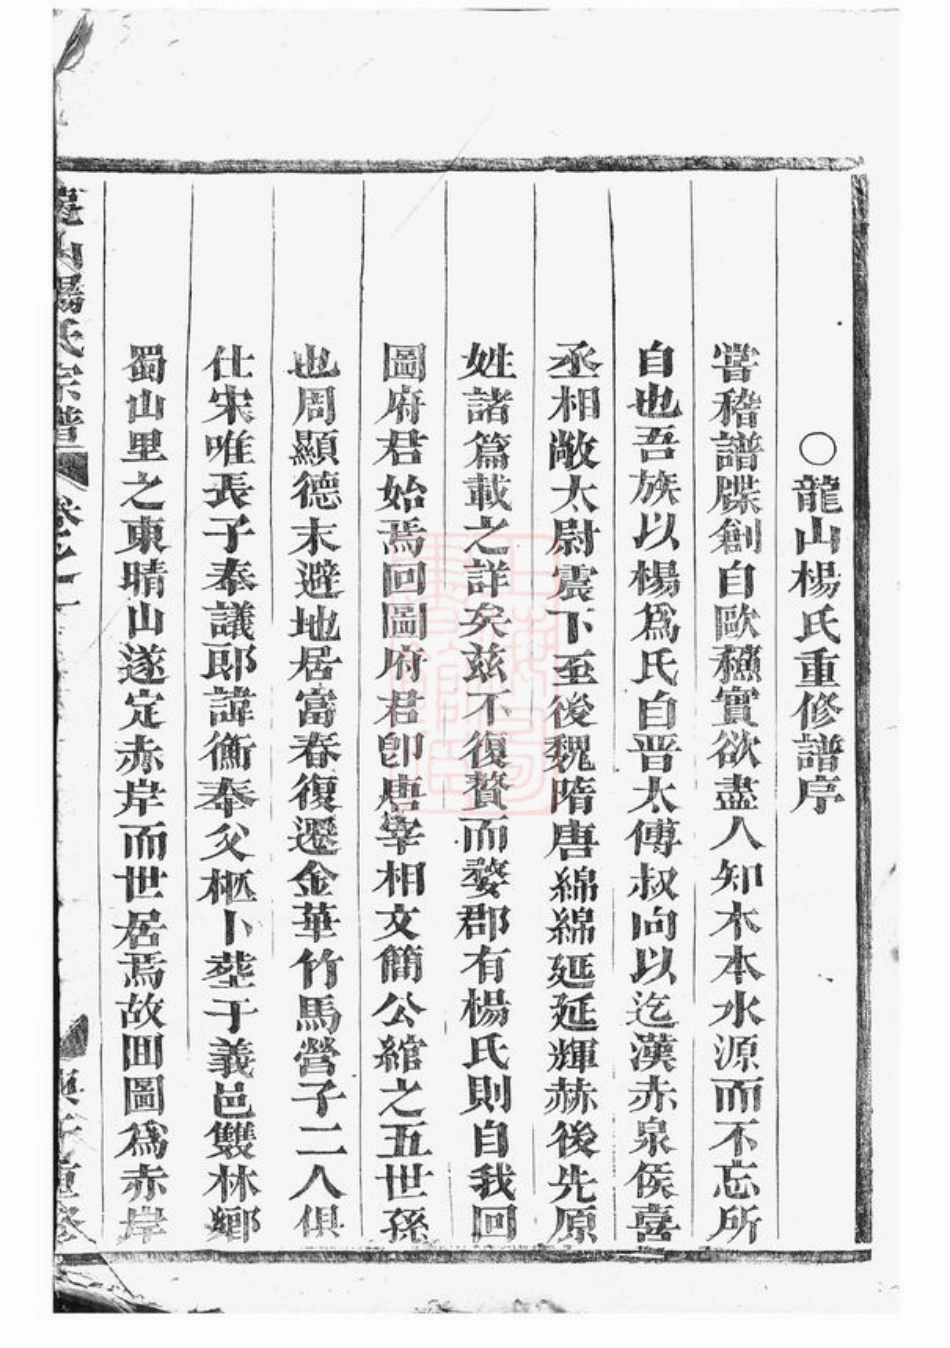 ○龍山楊氏重修譜序
嘗稽譜牒創自歐蘓實欲盡人知木本水源而不忘所
自也吾族以楊爲氏自晋太傅叔向以迄漢赤泉侯喜
丞相敞太尉震下至後魏隋唐綿綿延延輝赫後先原
姓諸篇載之詳矣兹不復贅而婺郡有楊氏則自我回
圖府君始焉回圖府君卽唐宰相文簡公綰之五世孫
也周顯德末避地居富春復遷金華竹馬營子二人俱
仕宋唯長子奉議郎諱衡奉父柩卜塟于義邑雙林鄉
蜀山里之東晴山遂定赤岸而世居焉故囬圖爲赤岸
山楊氏宗譜 卷之一 重修